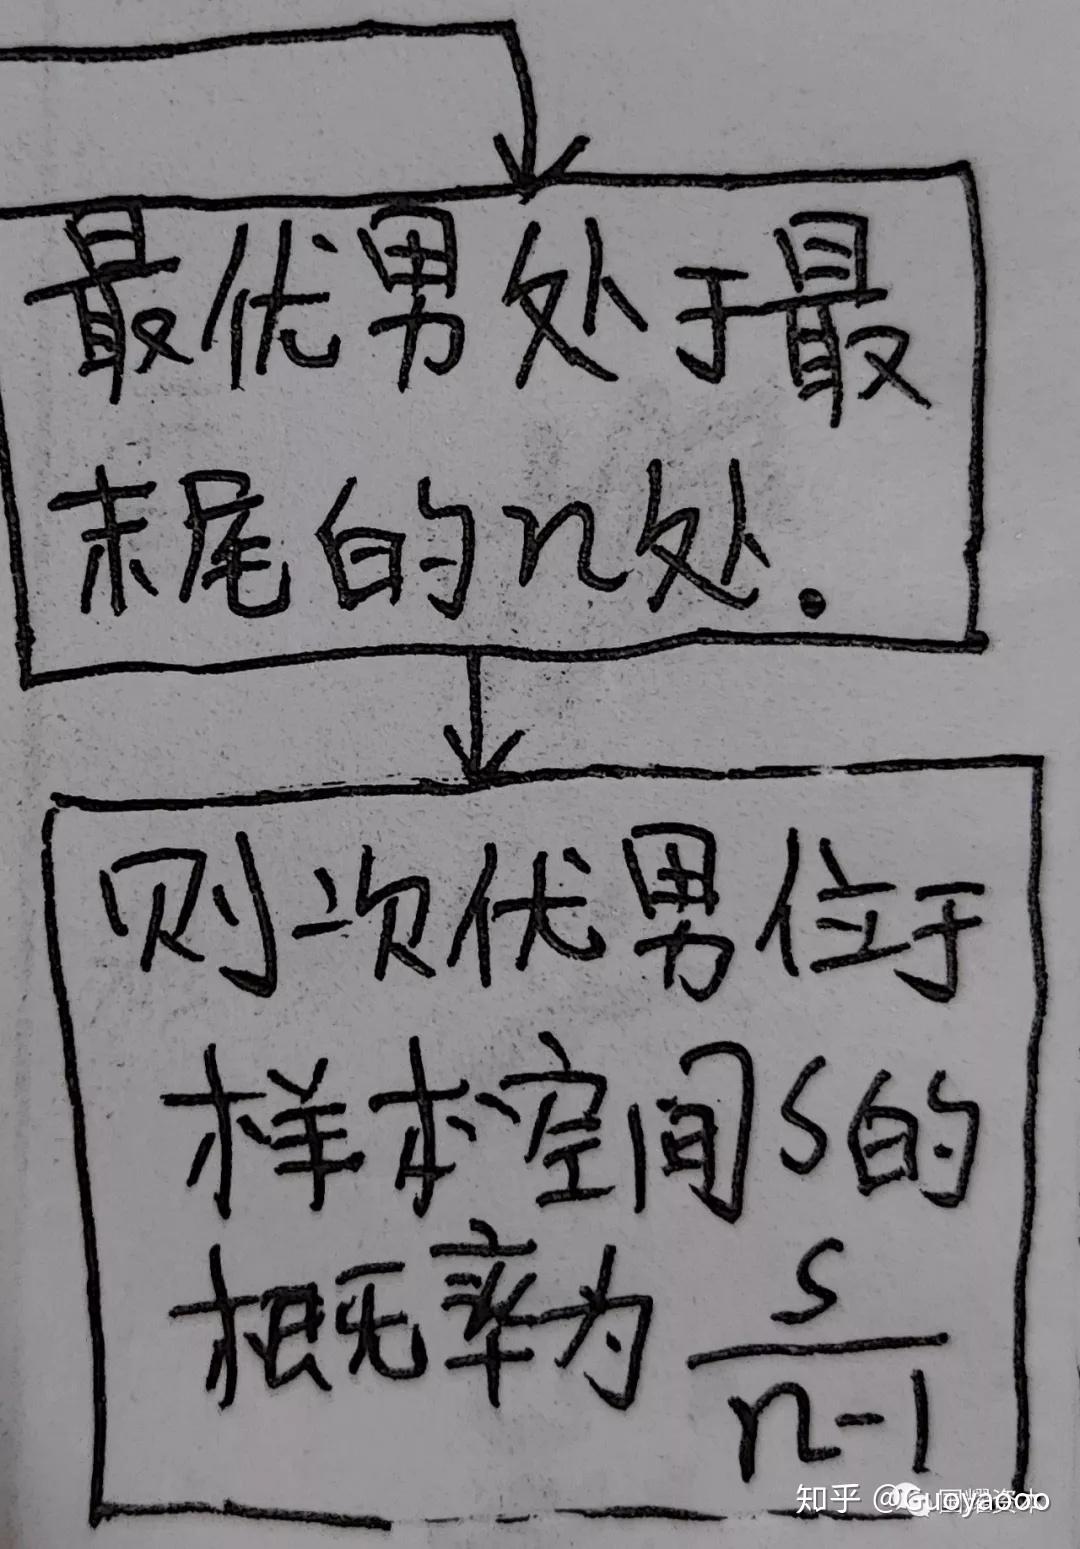 最优男处于最
末尾的n处.
则次优男位于
样本空间S的
概率为 S/n-1
知乎 @Guoyaooo